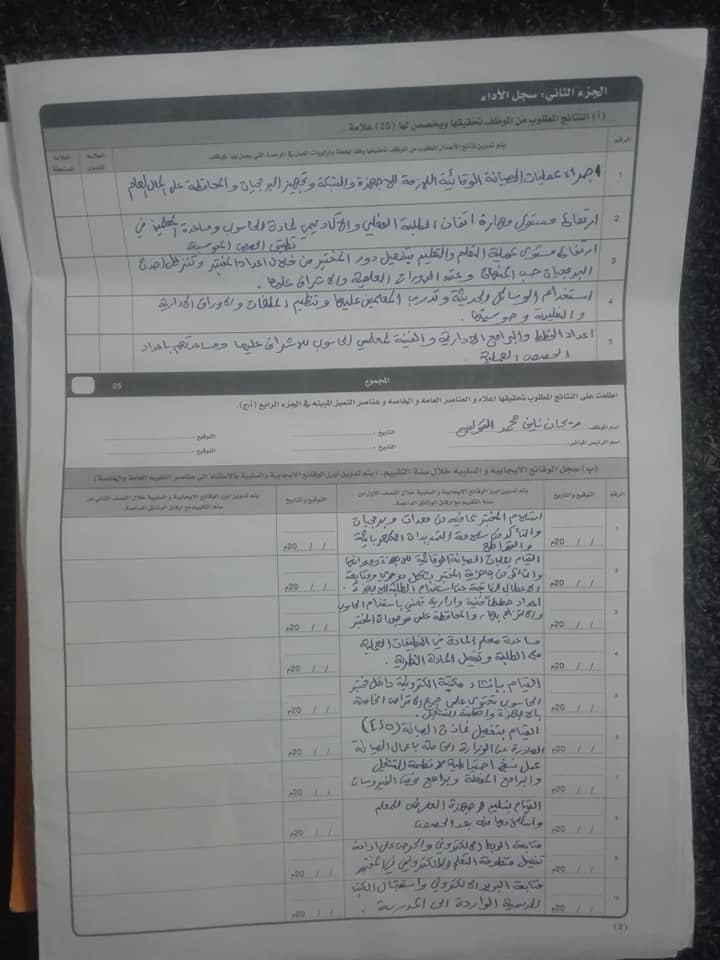 الجزء الثاني: سجل الأداء
(أ) النتائج المطلوب من الموظف تحقيقها ويخصص لها (25) علامة .
الرقم
يتم تدوين نتائج الأعمال المطلوب من الموظف تحقيقها وفقا لخطة وأولويات العمل في الوحدة التي يعمل بها الموظف
العلامة القصوى
العلامة المستحقة
1
اجراء عمليات الصيانة الوقائية اللازمة للاجهزة والشبكة وتجهيز البرمجيات والمحافظة على المال العام
2
ارتفاع مستوى مهارة اتقان الطلبة العملي والأكاديمي لمادة الحاسوب ومساعدة المعلمين في
تطبيق الحصص المحوسبة
3
ارتفاع مستوى عملية التعلم والتعليم بتفعيل دور المختبر من خلال اعداد المختبر وتنزيل احدث
البرمجيات حسب المنهاج وعقد الدورات العلمية والاشراف عليها.
4
استخدام الوسائل الحديثة وتدريب المعلمين عليها وتنظيم الملفات والاوراق الادارية
والفنية وحوسبتها.
5
اعداد الخطط والبرامج الادارية والفنية لمعلمي الحاسوب للاشراف عليها ومساعدتهم باعداد
الحصص العملية.
المجموع
25
اطلعت على النتائج المطلوب تحقيقها اعلاه و العناصر العامه و الخاصه و عناصر التميز المبينه في الجزء الرابع (أ،ج).
اسم الموظف: محمد
التاريخ :
التوقيع :
اسم الرئيس المباشر:
التاريخ :
التوقيع :
(ب) سجل الوقائع الايجابيه و السلبيه خلال سنة التقييم. (يتم تدوين ابرز الوقائع الايجابية والسلبية بالاستناد الى عناصر التقييم العامة والخاصة)
الرقم
يتم تدوين ابرز الوقائع الايجابية و السلبية خلال النصف الاول من
سنة التقييم مع ارفاق الوثائق الداعمة.
التوقيع والتاريخ
يتم تدوين ابرز الوقائع الايجابية و السلبية خلال النصف الثاني من
سنة التقييم مع ارفاق الوثائق الداعمة.
التوقيع والتاريخ
1
استلام المختبر بما فيه من معدات وبرمجيات
والتأكد من سلامة التمديدات الكهربائية
/ / 20م
/ / 20م
2
القيام بعمليات الصيانة الوقائية للاجهزة ومعداتها
والتأكد من جاهزية المختبر بشكل دوري ومتابعة
الاعطال الناتجة عن استخدام الطلبة للاجهزة.
/ / 20م
/ / 20م
3
اعداد خططا فنية وادارية تعنى باستخدام الحاسوب
والالتزام بها، والمحافظة على موجودات المختبر
/ / 20م
/ / 20م
4
مساعدة معلم المادة في التطبيقات العملية
مع الطلبة وتفعيل المادة النظرية.
/ / 20م
/ / 20م
5
القيام بإنشاء مكتبة الكترونية داخل مختبر
الحاسوب تحتوي على جميع الاقراص الخاصة
بالاجهزة وانظمة التشغيل.
/ / 20م
/ / 20م
6
القيام بتفعيل نماذج الصيانة
الصادرة عن الوزارة الخاصة باعمال الصيانة
/ / 20م
/ / 20م
7
عمل نسخ احتياطية لانظمة التشغيل
والبرامج المختلفة وبرامج الفيروسات
/ / 20م
/ / 20م
8
القيام بتسليم اجهزة العارض للمعلم
واستلامها منه بعد الحصص
/ / 20م
/ / 20م
9
متابعة الربط الالكتروني والحرص على ادامة
تفعيل منظومة التعلم الالكتروني في المختبر
/ / 20م
/ / 20م
10
متابعة البريد الالكتروني واستقبال الكتب
الرسمية الواردة الى المدرسة.
/ / 20م
/ / 20م
(2)